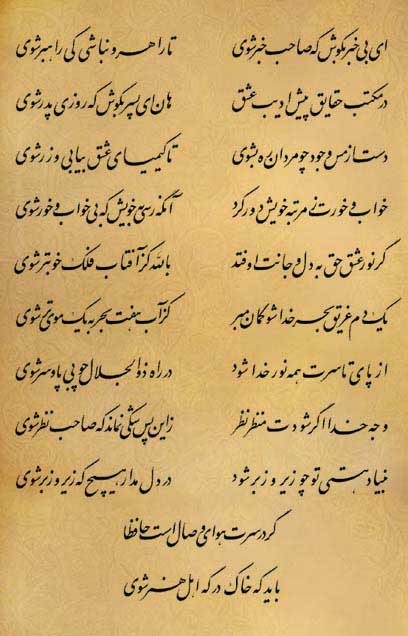 ای بی خبر بکوش که صاحب خبر شوی تا راهرو نباشی کی راهبر شوی
در مکتب حقایق پیش ادیب عشق هان ای پسر بکوش که روزی پدر شوی
دست از مس وجود چو مردان ره بشوی تا کیمیای عشق بیابی و زر شوی
خواب و خورت ز مرتبه خویش دور کرد آنگه رسی به خویش که بی خواب و خور شوی
گر نور عشق حق به دل و جانت اوفتد بالله کز آفتاب فلک خوبتر شوی
یک دم غریق بحر خدا شو گمان مبر کز آب هفت بحر به یک موی تر شوی
از پای تا سرت همه نور خدا شود در راه ذوالجلال چو بی پا و سر شوی
وجه خدا اگر شودت منظر نظر زین پس شکی نماند که صاحب نظر شوی
بنیاد هستی تو چو زیر و زبر شود در دل مدار هیچ که زیر و زبر شوی
گر در سرت هوای وصال است حافظا
باید که خاک درگه اهل هنر شوی